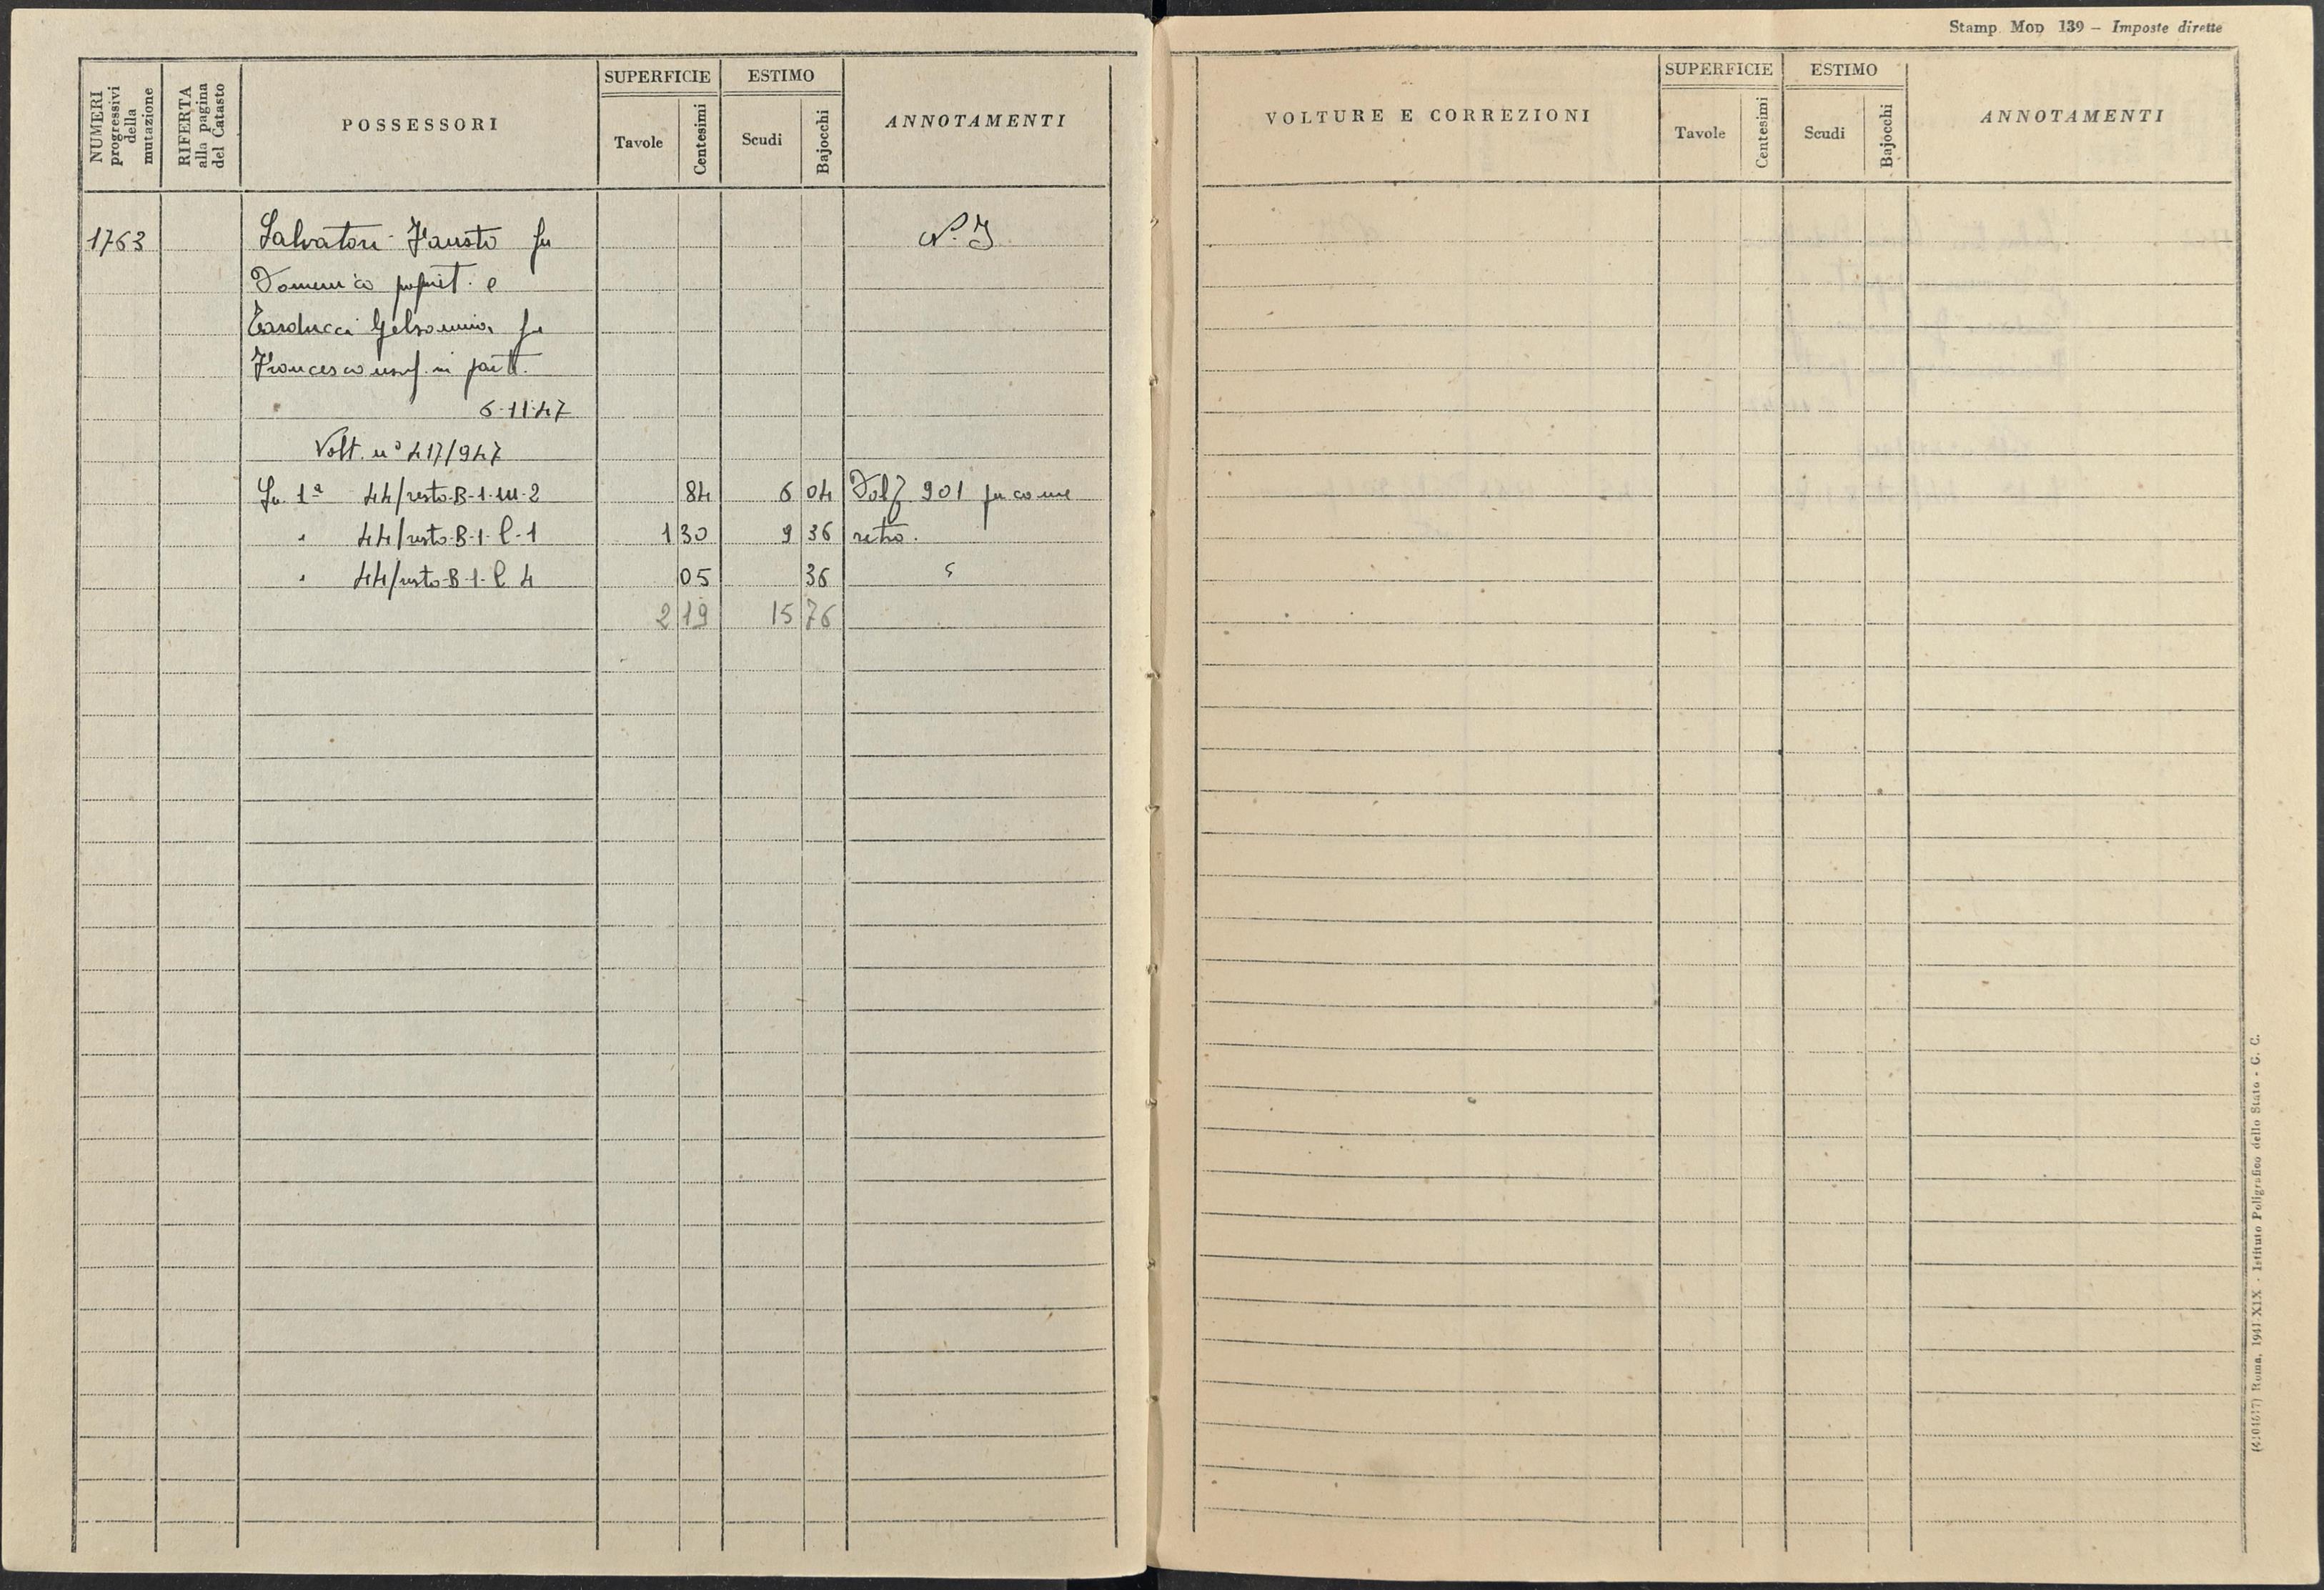 NUMERI progressivi della mutazione
RIFERTA alla pagina del Catasto
POSSESSORI
SUPERFICIE
Tavole
Centesimi
ESTIMO
Scudi
Bajocchi
ANNOTAMENTI
1763 Salvatori Fausto fu N. I
Domenico propriet. e
Tarducci Gelsomina fu
Francesco usuf. in part.
6-11-47
Volt. n° 417/947
Su. 1ª 44/resto-B-1-m-2 84 6 04 Dal f 901 per come
" 44/resto-B-1-l-1 1 30 9 36 retro.
" 44/resto-B-1-l 4 05 36 "
2 19 15 76
Stamp. Mod 139 – Imposte dirette
VOLTURE E CORREZIONI
SUPERFICIE
Tavole
Centesimi
ESTIMO
Scudi
Bajocchi
ANNOTAMENTI
Roma, 1941-XIX - Istituto Poligrafico dello Stato - G. C.